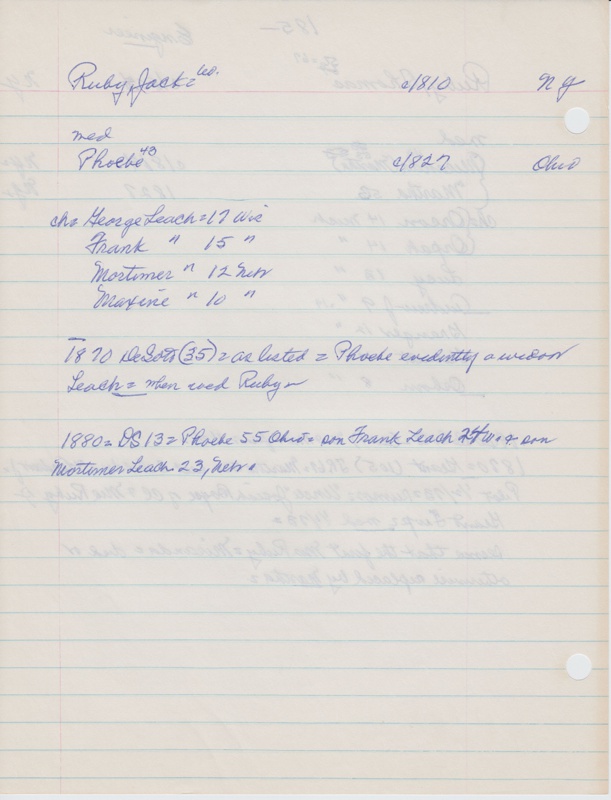 Ruby, Jack = 60. c/1810 N Y
med
Phoebe 43 c/1827 Ohio
ch = George Leach = 17 Wis
Frank " 15 "
Mortimer " 12 Nebr
Maxine " 10 "
1870 DeSoto (35) = as listed = Phoebe evidently a widow
Leach = when med Ruby =
1880 = DS 13 = Phoebe 55 Ohio = son Frank Leach 24 W. & son
Mortimer Leach 23, Nebr.